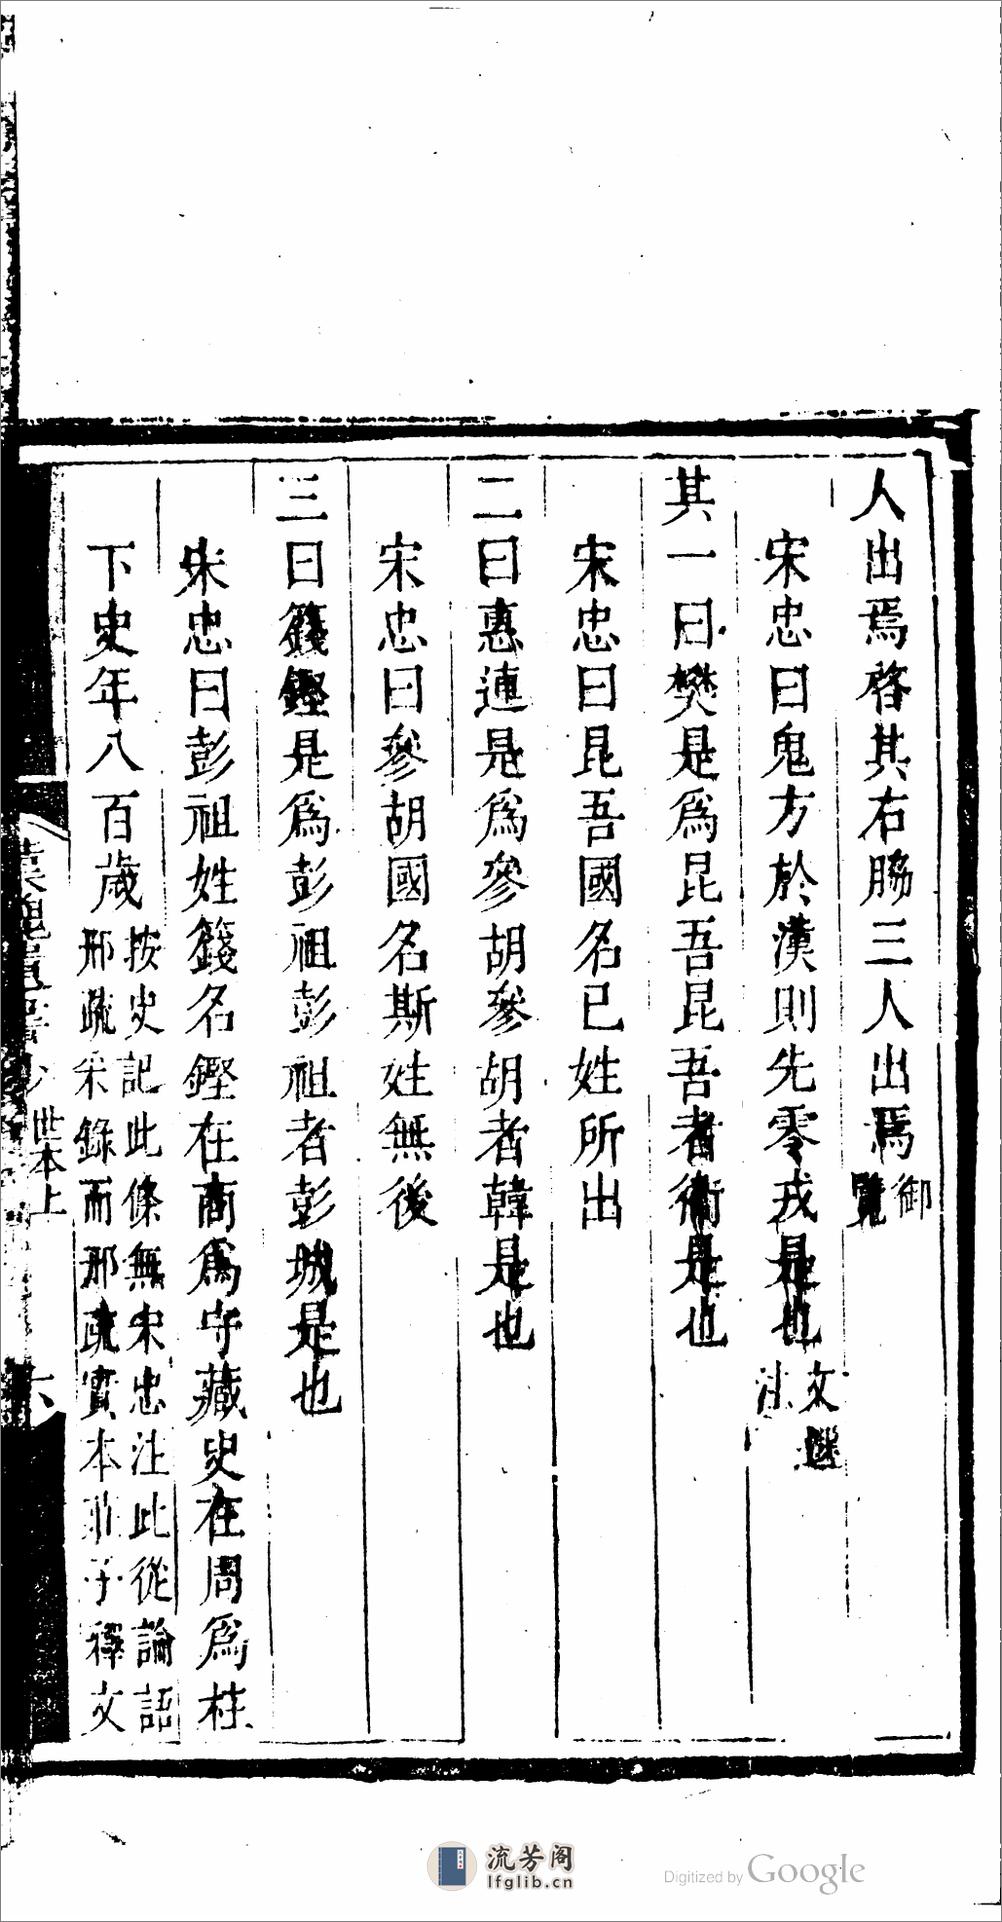 人出焉啓其右脇三人出焉御覽
宋忠曰鬼方於漢則先零戎是也文選注
其一曰樊是爲昆吾昆吾者衞是也
宋忠曰昆吾國名已姓所出
二曰惠連是爲參胡參胡者韓是也
宋忠曰參胡國名斯姓無後
三曰籛鏗是爲彭祖彭祖者彭城是也
宋忠曰彭祖姓籛名鏗在商爲守藏史在周爲柱
下史年八百歲按史記此條無宋忠注此從論語
邢疏采錄而邢疏實本莊子釋文
世本上
六
流芳阁
lfglib.cn
Digitized by Google